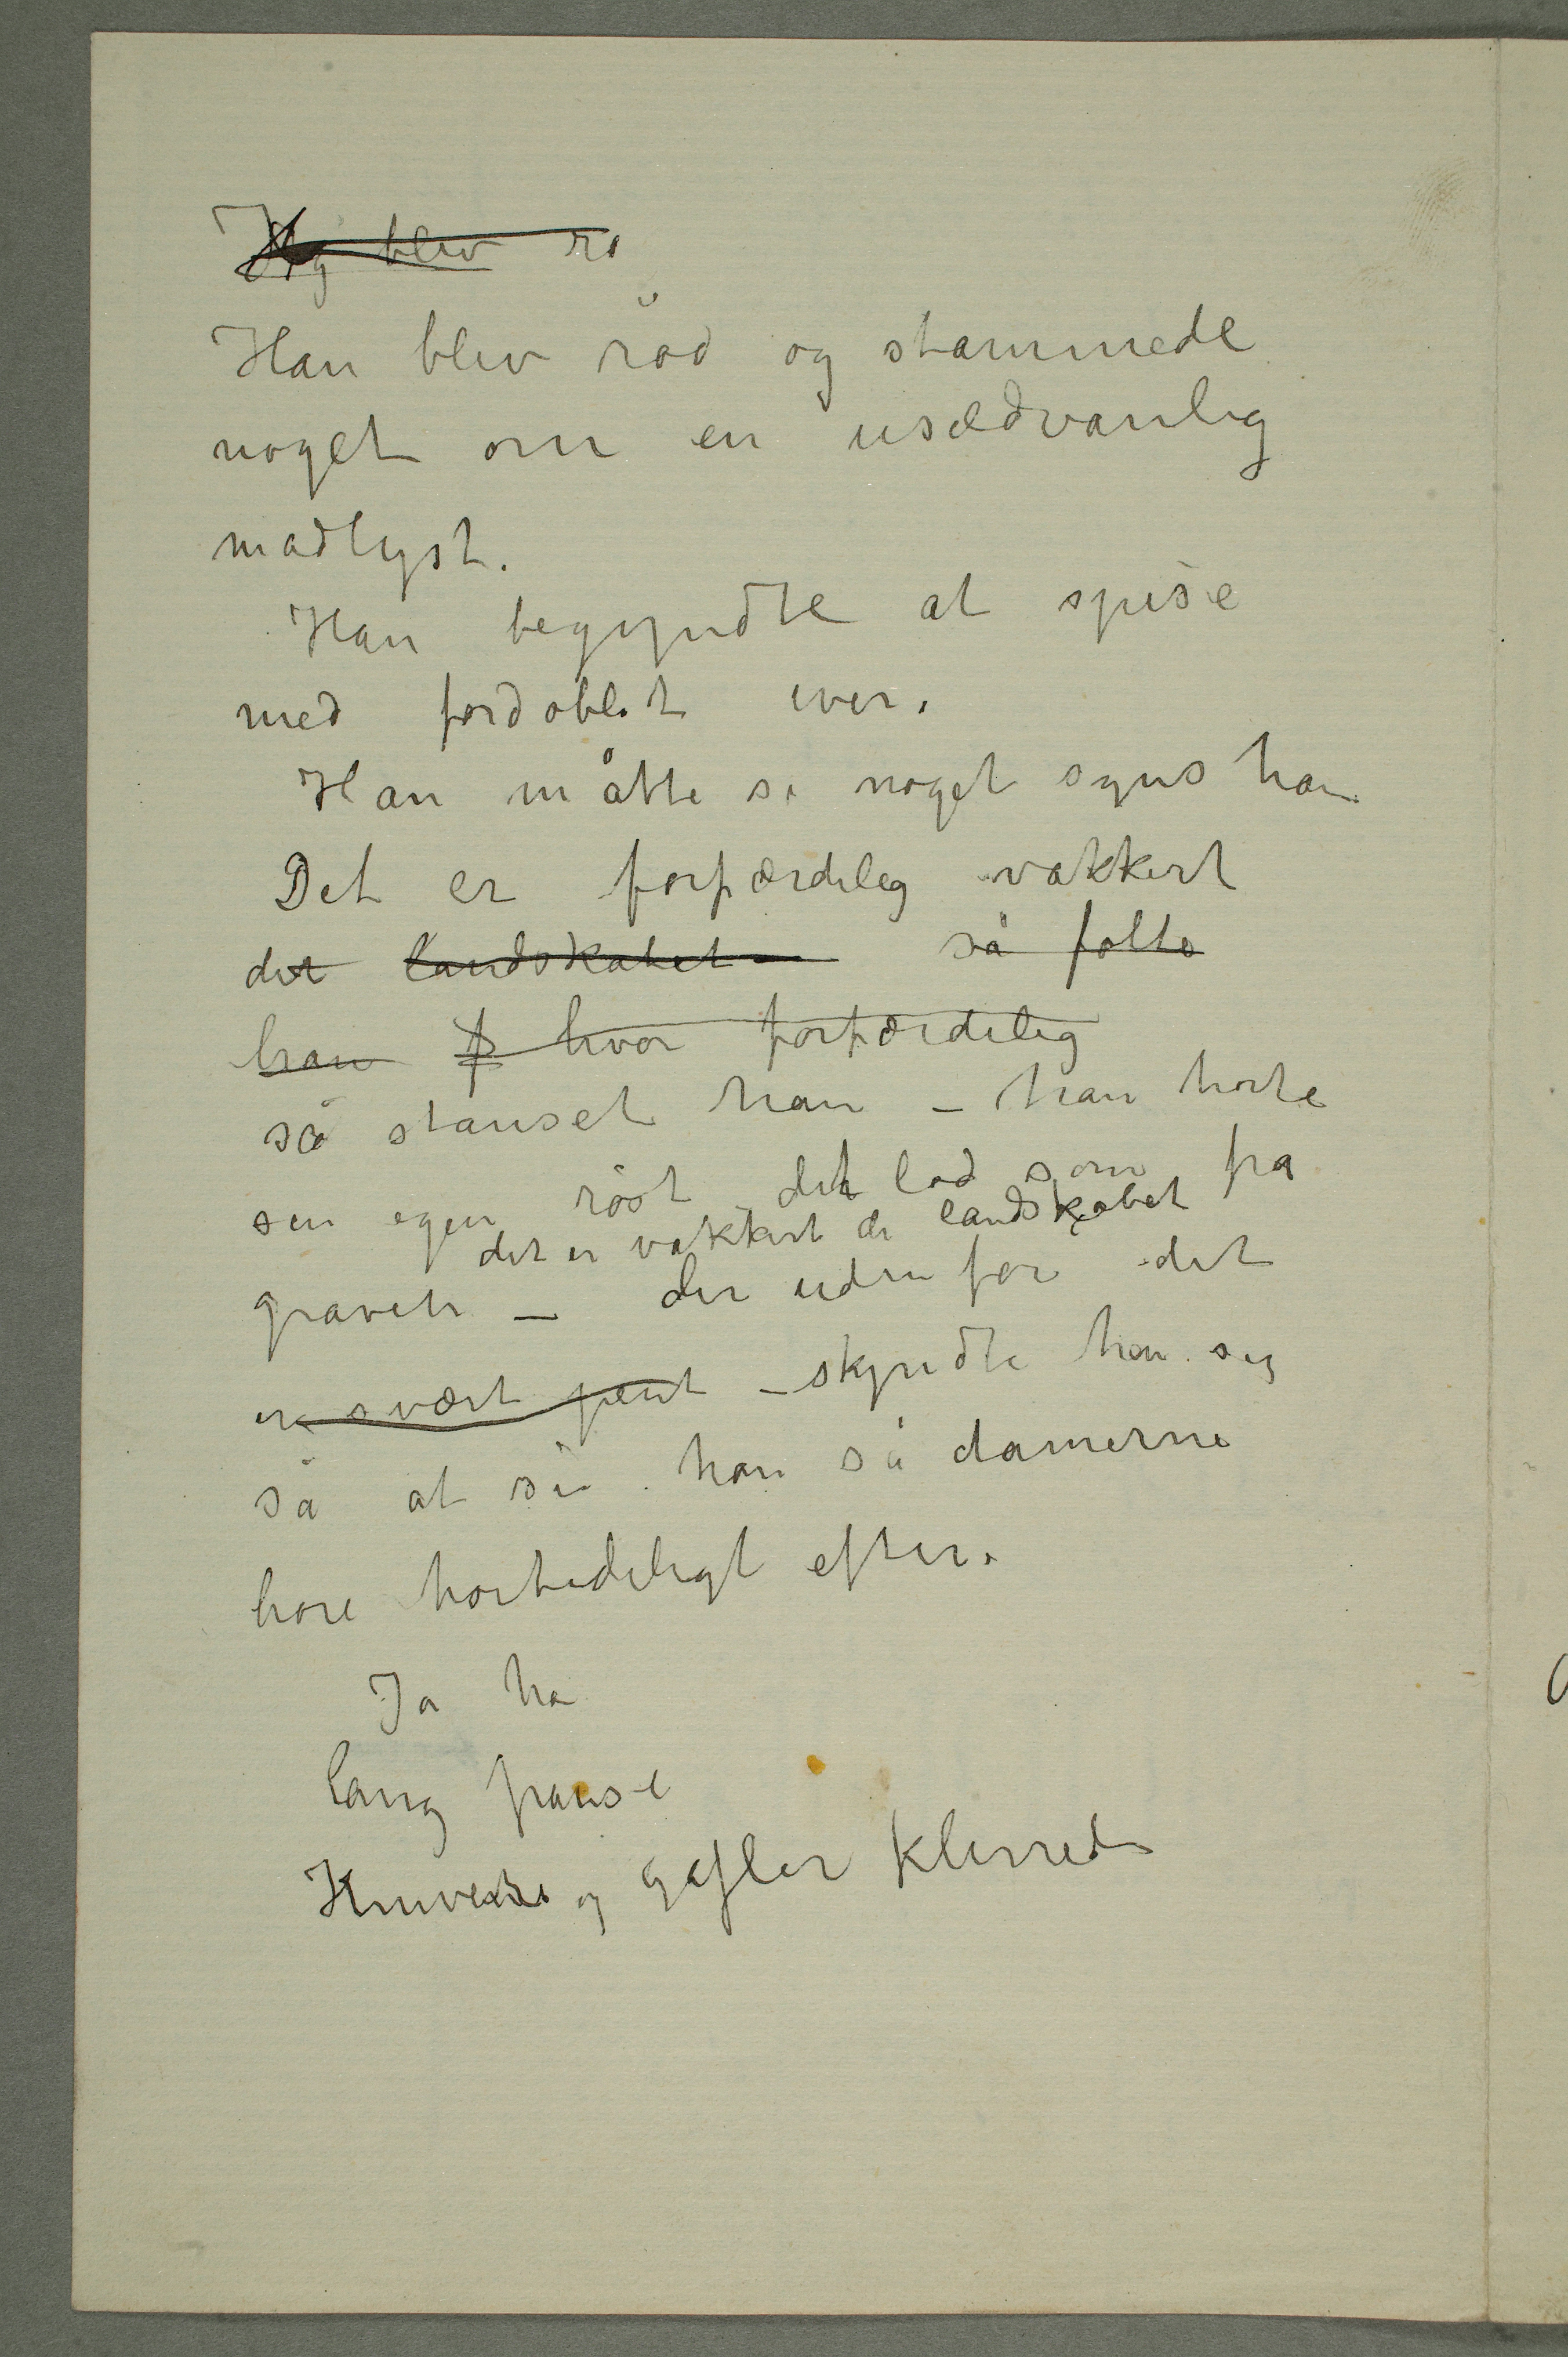 Jeg blev rø
Han blev röd og stammede
noget om en usædvanlig
madlyst.
Han begyndte at spise
med fordoblet iver.
Han måtte si noget syns han
Det er forfærdelig vakkert
det landskabet – så følte
han f hvor forfærdelig
så stanset han – han hørte
sin egen röst det lød som fra
det er vakkert de landskabet
graven – der udenfor det
er svært pent – skyndte han sig
så at si. han så damerne
høre høitideligt efter.
Ja ha
lang pause
Knivene og gafler klirrede